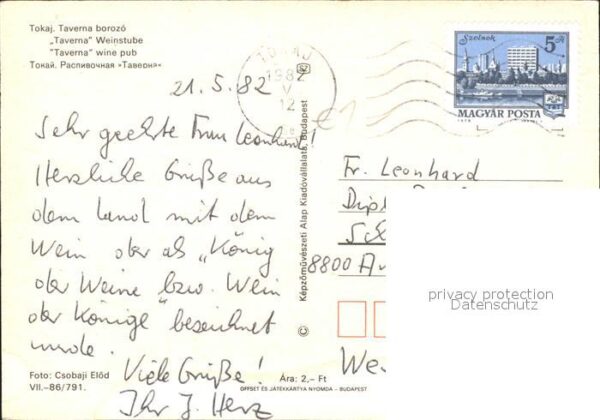 Tokaj. Taverna borozó
„Taverna" Weinstube
"Taverna" wine pub
Токай. Распивочная »Таверна«
21.5.82
Sehr geehrte Frau Leonhard!
Herzliche Grüße aus
dem Land mit dem
Wein der als „König
der Weine bzw. Wein
der Könige" bezeichnet
wurde.
Viele Grüße!
Ihr J. Herz
Foto: Csobaji Előd
VII.-86/791.
Ára: 2,- Ft
OFFSET ÉS JÁTÉKKÁRTYA NYOMDA - BUDAPEST
© Képzőművészeti Alap Kiadóvállalata, Budapest
TOKAJ
1982
V
12
Szolnok
5 Ft
MAGYAR POSTA
Fr. Leonhard
Dipl
8800 An
We
privacy protection
Datenschutz